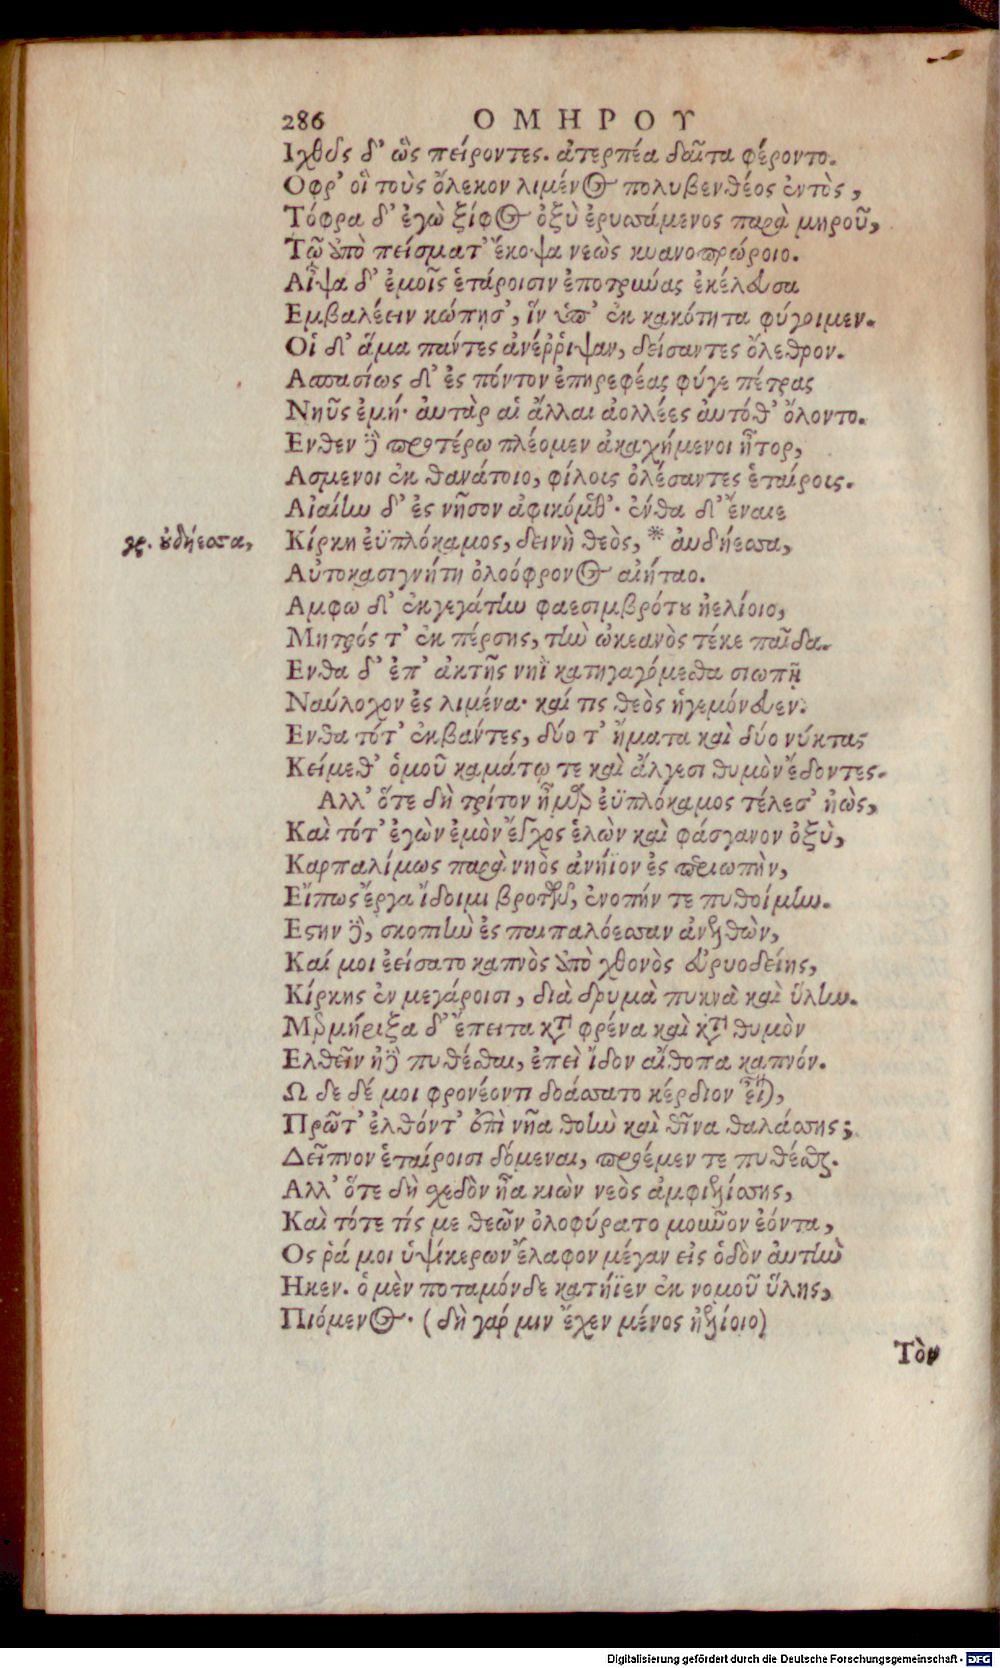 286 ΟΜΗΡΟΥ
Ιχθῦς δ' ὣς πείροντες. ἀτερπέα δαῖτα φέροντο.
Οφρ' οἳ τοὺς ὄλεκον λιμένος πολυβενθέος ἐντὸς,
Τόφρα δ' ἐγὼ ξίφος ὀξὺ ἐρυσσάμενος παρὰ μηροῦ,
Τῷ ὑπὸ πείσματ' ἔκοψα νεὼς κυανοπρώροιο.
Αἶψα δ' ἐμοῖς ἑτάροισιν ἐποτρύνας ἐκέλευσα
Εμβαλέειν κώπῃσ', ἵν ὑπ' ἐκ κακότητα φύγοιμεν.
Οἱ δ' ἅμα πάντες ἀνέῤῥιψαν, δείσαντες ὄλεθρον.
Ασπασίως δ' ἐς πόντον ἐπηρεφέας φύγε πέτρας
Νηῦς ἐμή· ἀυτὰρ αἱ ἄλλαι ἀολλέες ἀυτόθ' ὄλοντο.
Ενθεν δὲ προτέρω πλέομεν ἀκαχήμενοι ἦτορ,
Ασμενοι ἐκ θανάτοιο, φίλοις ὀλέσαντες ἑταίροις.
Αἰαίην δ' ἐς νῆσον ἀφικόμεθ'· ἐνθα δ' ἔναιε
γρ. οὐδήεσσα,
Κίρκη ἐϋπλόκαμος, δεινὴ θεὸς, * ἀυδήεσσα,
Αὐτοκασιγνήτη ὀλοόφρονος αἰήταο.
Αμφω δ' ἐκγεγάτην φαεσιμβρότου ἠελίοιο,
Μητρός τ' ἐκ πέρσης, τὴν ὠκεανὸς τέκε παῖδα.
Ενθα δ' ἐπ' ἀκτῆς νηῒ κατηγαγόμεσθα σιωπῇ
Ναύλοχον ἐς λιμένα· καί τις θεὸς ἡγεμόνευεν.
Ενθα τότ' ἐκβάντες, δύο τ' ἤματα καὶ δύο νύκτας
Κείμεθ' ὁμοῦ καμάτῳ τε καὶ ἄλγεσι θυμὸν ἔδοντες.
Αλλ' ὅτε δὴ τρίτον ἦμαρ ἐϋπλόκαμος τέλεσ' ἠὼς,
Καὶ τότ' ἐγὼν ἐμὸν ἔγχος ἑλὼν καὶ φάσγανον ὀξὺ,
Καρπαλίμως παρὰ νηὸς ἀνήϊον ἐς περιωπὴν,
Εἴπως ἔργα ἴδοιμι βροτῶν, ἐνοπήν τε πυθοίμην.
Εστην δὲ, σκοπιὴν ἐς παιπαλόεσσαν ἀνελθὼν,
Καί μοι ἐείσατο καπνὸς ὑπὸ χθονὸς εὐρυοδείης,
Κίρκης ἐν μεγάροισι, διὰ δρυμὰ πυκνὰ καὶ ὕλην.
Μερμήριξα δ' ἔπειτα κατὰ φρένα καὶ κατὰ θυμὸν
Ελθεῖν ἠδὲ πυθέσθαι, ἐπεὶ ἴδον αἴθοπα καπνόν.
Ω δε δέ μοι φρονέοντι δοάσσατο κέρδιον εἶναι,
Πρῶτ' ἐλθόντ' ἐπὶ νῆα θοὴν καὶ θῖνα θαλάσσης;
Δεῖπνον ἑταίροισι δόμεναι, προέμεν τε πυθέσθαι.
Αλλ' ὅτε δὴ σχεδὸν ἦα κιὼν νεὸς ἀμφιελίσσης,
Καὶ τότε τίς με θεῶν ὀλοφύρατο μοῦνον ἐόντα,
Ος ῥά μοι ὑψίκερων ἔλαφον μέγαν εἰς ὁδὸν ἀυτὴν
Ηκεν. ὁ μὲν ποταμόνδε κατήϊεν ἐκ νομοῦ ὕλης,
Πιόμενος· (δὴ γάρ μιν ἔχεν μένος ἠελίοιο)
Τὸν
Digitalisierung gefördert durch die Deutsche Forschungsgemeinschaft - DFG